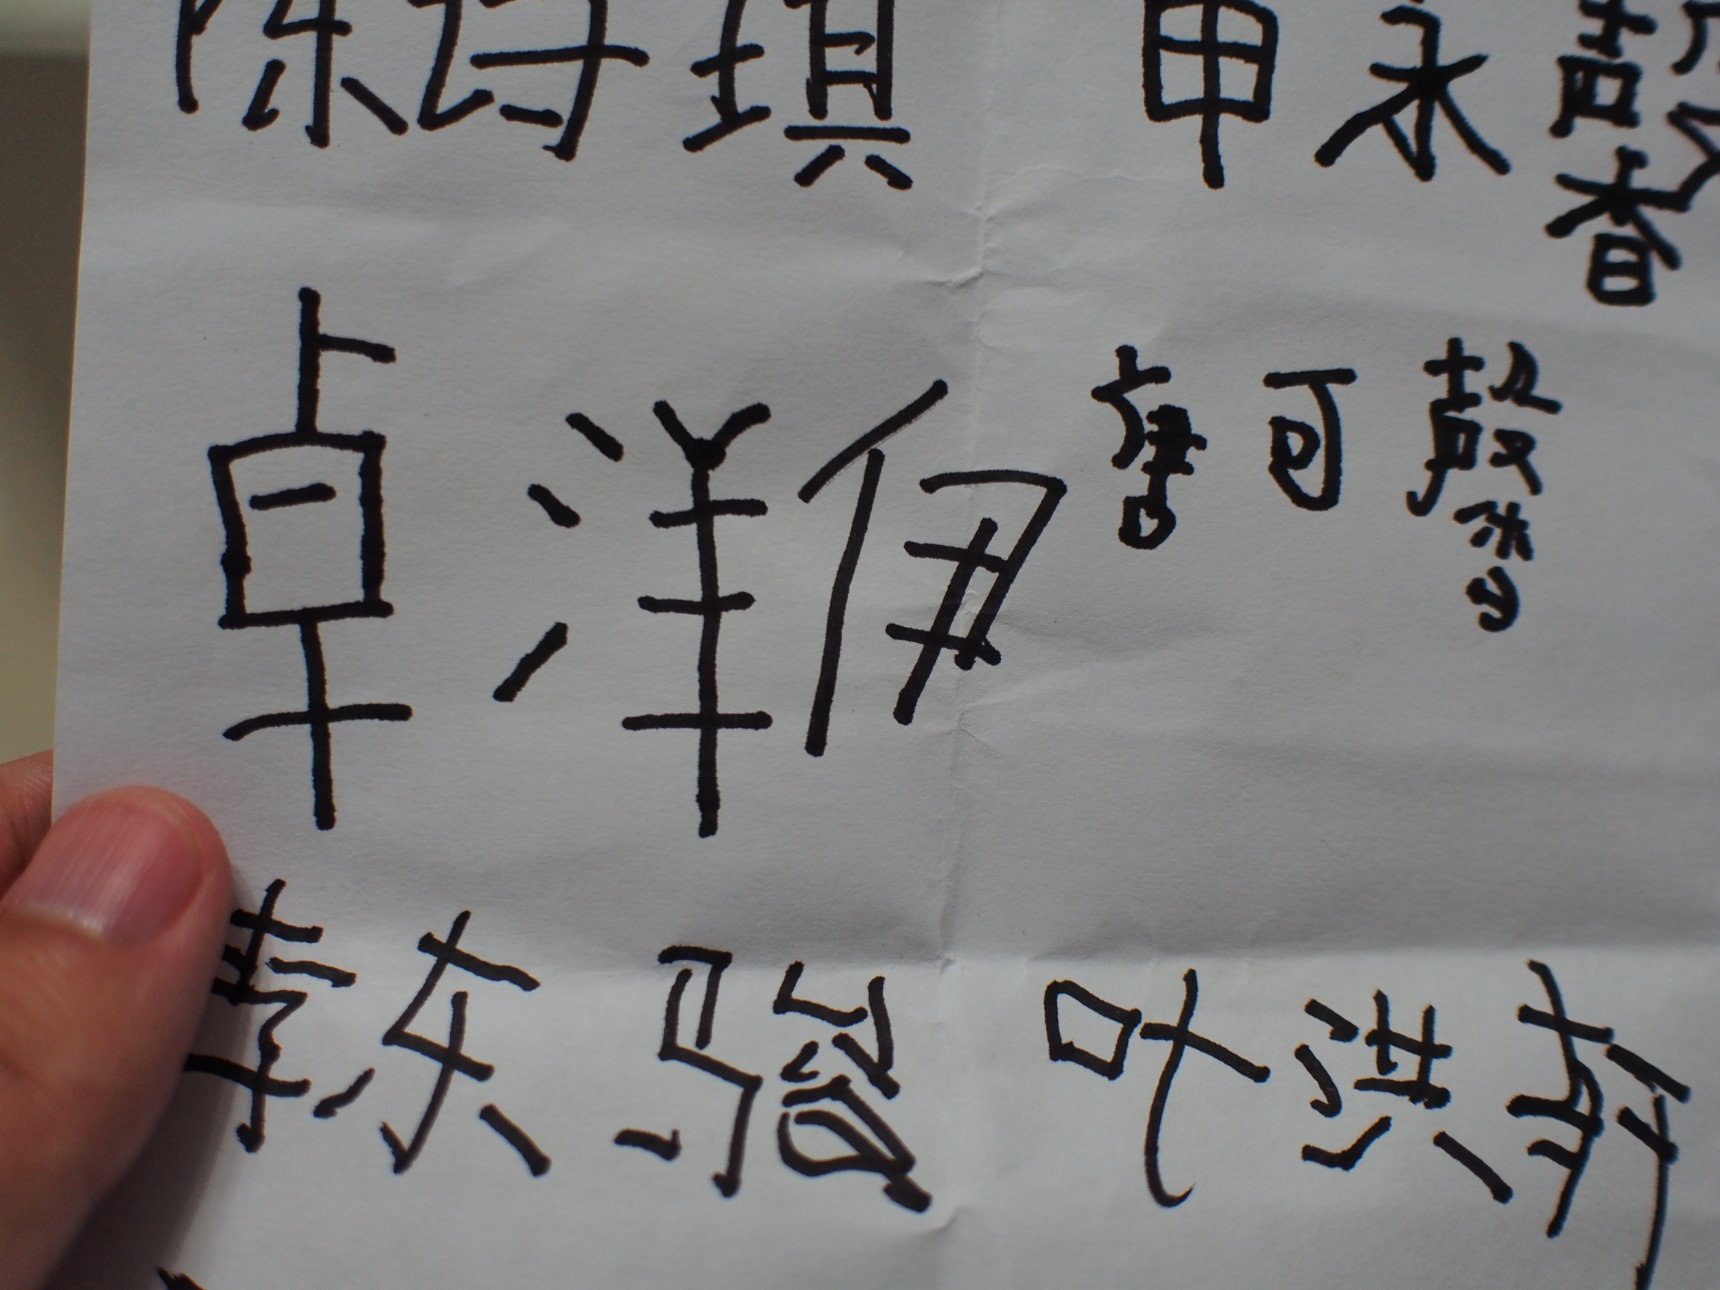 陈诗琪 申永馨
卓洋伊 可馨
韩东骏 叶洪